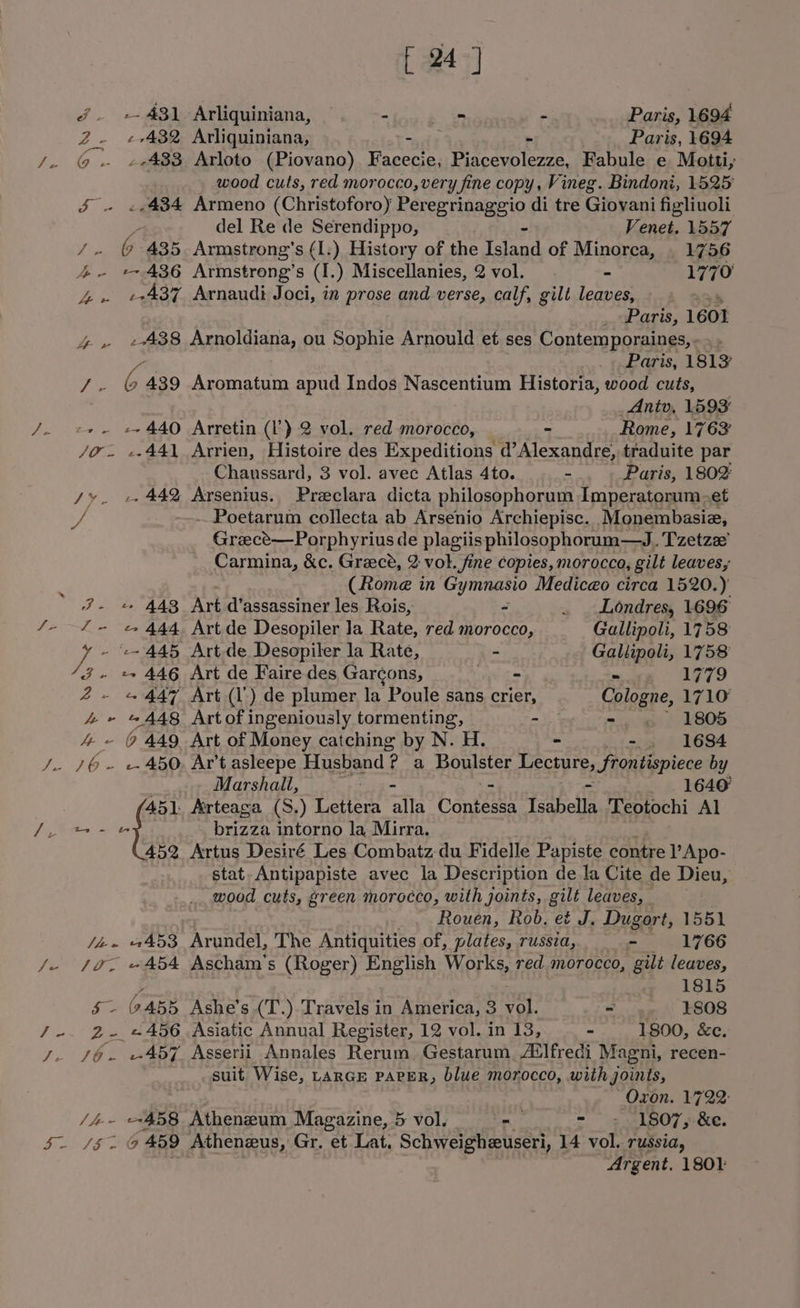 [ 24 ]
3 - -- 431 Arliquiniana, - - - Paris, 1694
2 - 432 Arliquiniana, - - Paris, 1694
1 - 6 - 433 Arloto (Piovano) Facecie, Piacevolezze, Fabule e Motti,
wood cuts, red morocco, very fine copy, Vineg. Bindoni, 1525
5 - 434 Armeno (Christoforo) Peregrinaggio di tre Giovani figliuoli
del Re de Serendippo, - Venet. 1557
1 - 6 435 Armstrong's (I.) History of the Island of Minorca, 1756
4 - 436 Armstrong's (I.) Miscellanies, 2 vol. - 1770
4 - 437 Arnaudi Joci, in prose and verse, calf, gilt leaves,
Paris, 1601
4 - 438 Arnoldiana, ou Sophie Arnould et ses Contemporaines,
Paris, 1813
1 - 6 439 Aromatum apud Indos Nascentium Historia, wood cuts,
Antv. 1593
1 - - 440 Arretin (l') 2 vol. red morocco, - Rome, 1763
10 - 441 Arrien, Histoire des Expeditions d'Alexandre, traduite par
Chaussard, 3 vol. avec Atlas 4to. - Paris, 1802
442 Arsenius. Præclara dicta philosophorum Imperatorum et
Poetarum collecta ab Arsenio Archiepisc. Monembasiæ,
Græcè—Porphyrius de plagiis philosophorum—J. Tzetzæ
Carmina, &c. Græcè, 2 vol. fine copies, morocco, gilt leaves,
(Rome in Gymnasio Mediceo circa 1520.)
7 - 443 Art d'assassiner les Rois, - - Londres, 1696
1 - 1 - 444 Art de Desopiler la Rate, red morocco, Gallipoli, 1758
445 Art de Desopiler la Rate, - Gallipoli, 1758
3 - 446 Art de Faire des Garçons, - - 1779
2 - 447 Art (l') de plumer la Poule sans crier, Cologne, 1710
4 - 448 Art of ingeniously tormenting, - - 1805
4 - 6 449 Art of Money catching by N. H. - - 1684
1 - 16 - 450 Ar't asleepe Husband? a Boulster Lecture, frontispiece by
Marshall, - - - 1640
451 Arteaga (S.) Lettera alla Contessa Isabella Teotochi Al
1 - - brizza intorno la Mirra.
452 Artus Desiré Les Combatz du Fidelle Papiste contre l'Apo-
stat Antipapiste avec la Description de la Cite de Dieu,
wood cuts, green morocco, with joints, gilt leaves,
Rouen, Rob. et J. Dugort, 1551
14 - 453 Arundel, The Antiquities of, plates, russia, - 1766
1 - 10 - 454 Ascham's (Roger) English Works, red morocco, gilt leaves,
1815
5 - 6 455 Ashe's (T.) Travels in America, 3 vol. - 1808
1 - 2 - 456 Asiatic Annual Register, 12 vol. in 13, - 1800, &c.
1 - 16 - 457 Asserii Annales Rerum Gestarum Ælfredi Magni, recen-
suit Wise, LARGE PAPER, blue morocco, with joints,
Oxon. 1722
14 - 458 Athenæum Magazine, 5 vol. - - 1807, &c.
5 - 15 - 6 459 Athenæus, Gr. et Lat. Schweighæuseri, 14 vol. russia,
Argent. 1801